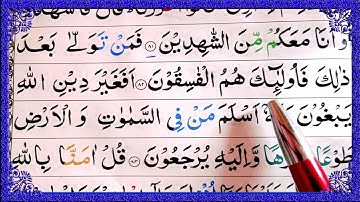 وَاَنَا مَعَكُمْ مِّنَ الشّٰهِدِيْنَ ۝۸۱ فَمَنْ تَوَلّٰى بَعْدَ
ذٰلِكَ فَاُولٰٓئِكَ هُمُ الْفٰسِقُوْنَ ۝۸۲ اَفَغَيْرَ دِيْنِ اللّٰهِ
يَبْغُوْنَ اَسْلَمَ مَنْ فِى السَّمٰوٰتِ وَ الْاَرْضِ
طَوْعًا وَّاِلَيْهِ يُرْجَعُوْنَ ۝۸۳ قُلْ اٰمَنَّا بِاللّٰهِ